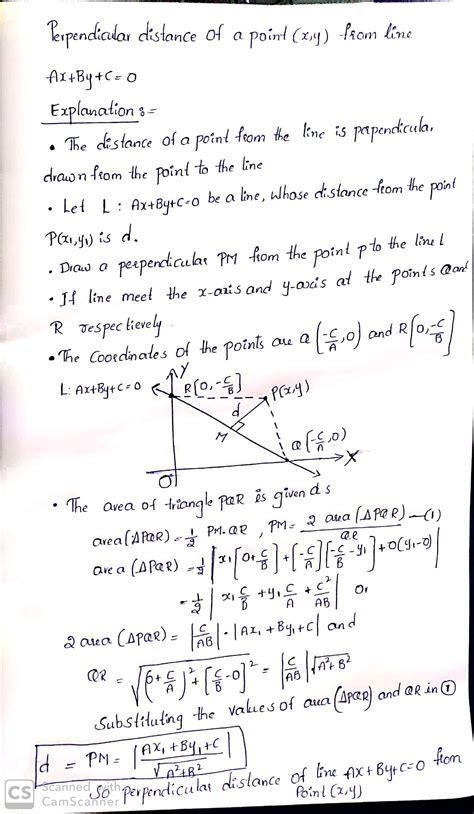 Perpendicular distance of a point (x,y) from line
Ax+By+C=0
Explanation :-
• The distance of a point from the line is perpendicular,
drawn from the point to the line
• Let L : Ax+By+C=0 be a line, whose distance from the point
P(x₁,y₁) is d.
• Draw a perpendicular PM from the point p to the line L
• If line meet the x-axis and y-axis at the points Q and
R respectively.
• The Coordinates of the points are Q (-C/A, 0) and R [0, -C/B]
L: Ax+By+C=0
Y
R[0, -C/B]
P(x,y)
d
M
Q (-C/A, 0)
X
O
• The area of triangle PQR is given as
area (ΔPQR) = 1/2 PM.QR , PM = 2 area (ΔPQR)/QR —(1)
area (ΔPQR) = 1/2 |x₁[0+C/B] + [-C/A][-C/B - y₁] + 0(y₁-0)|
= 1/2 |x₁ C/B + y₁ C/A + C²/AB| Or
2 area (ΔPQR) = |C/AB| · |Ax₁ + By₁ + C| and
QR = √([0+C/A]² + [C/B - 0]²) = |C/AB| √(A²+B²)
Substituting the values of area (ΔPQR) and QR in ①
d = PM = |Ax₁ + By₁ + C| / √(A²+B²)
So perpendicular distance of line Ax+By+C=0 from
Point (x,y)
CS Scanned with
CamScanner